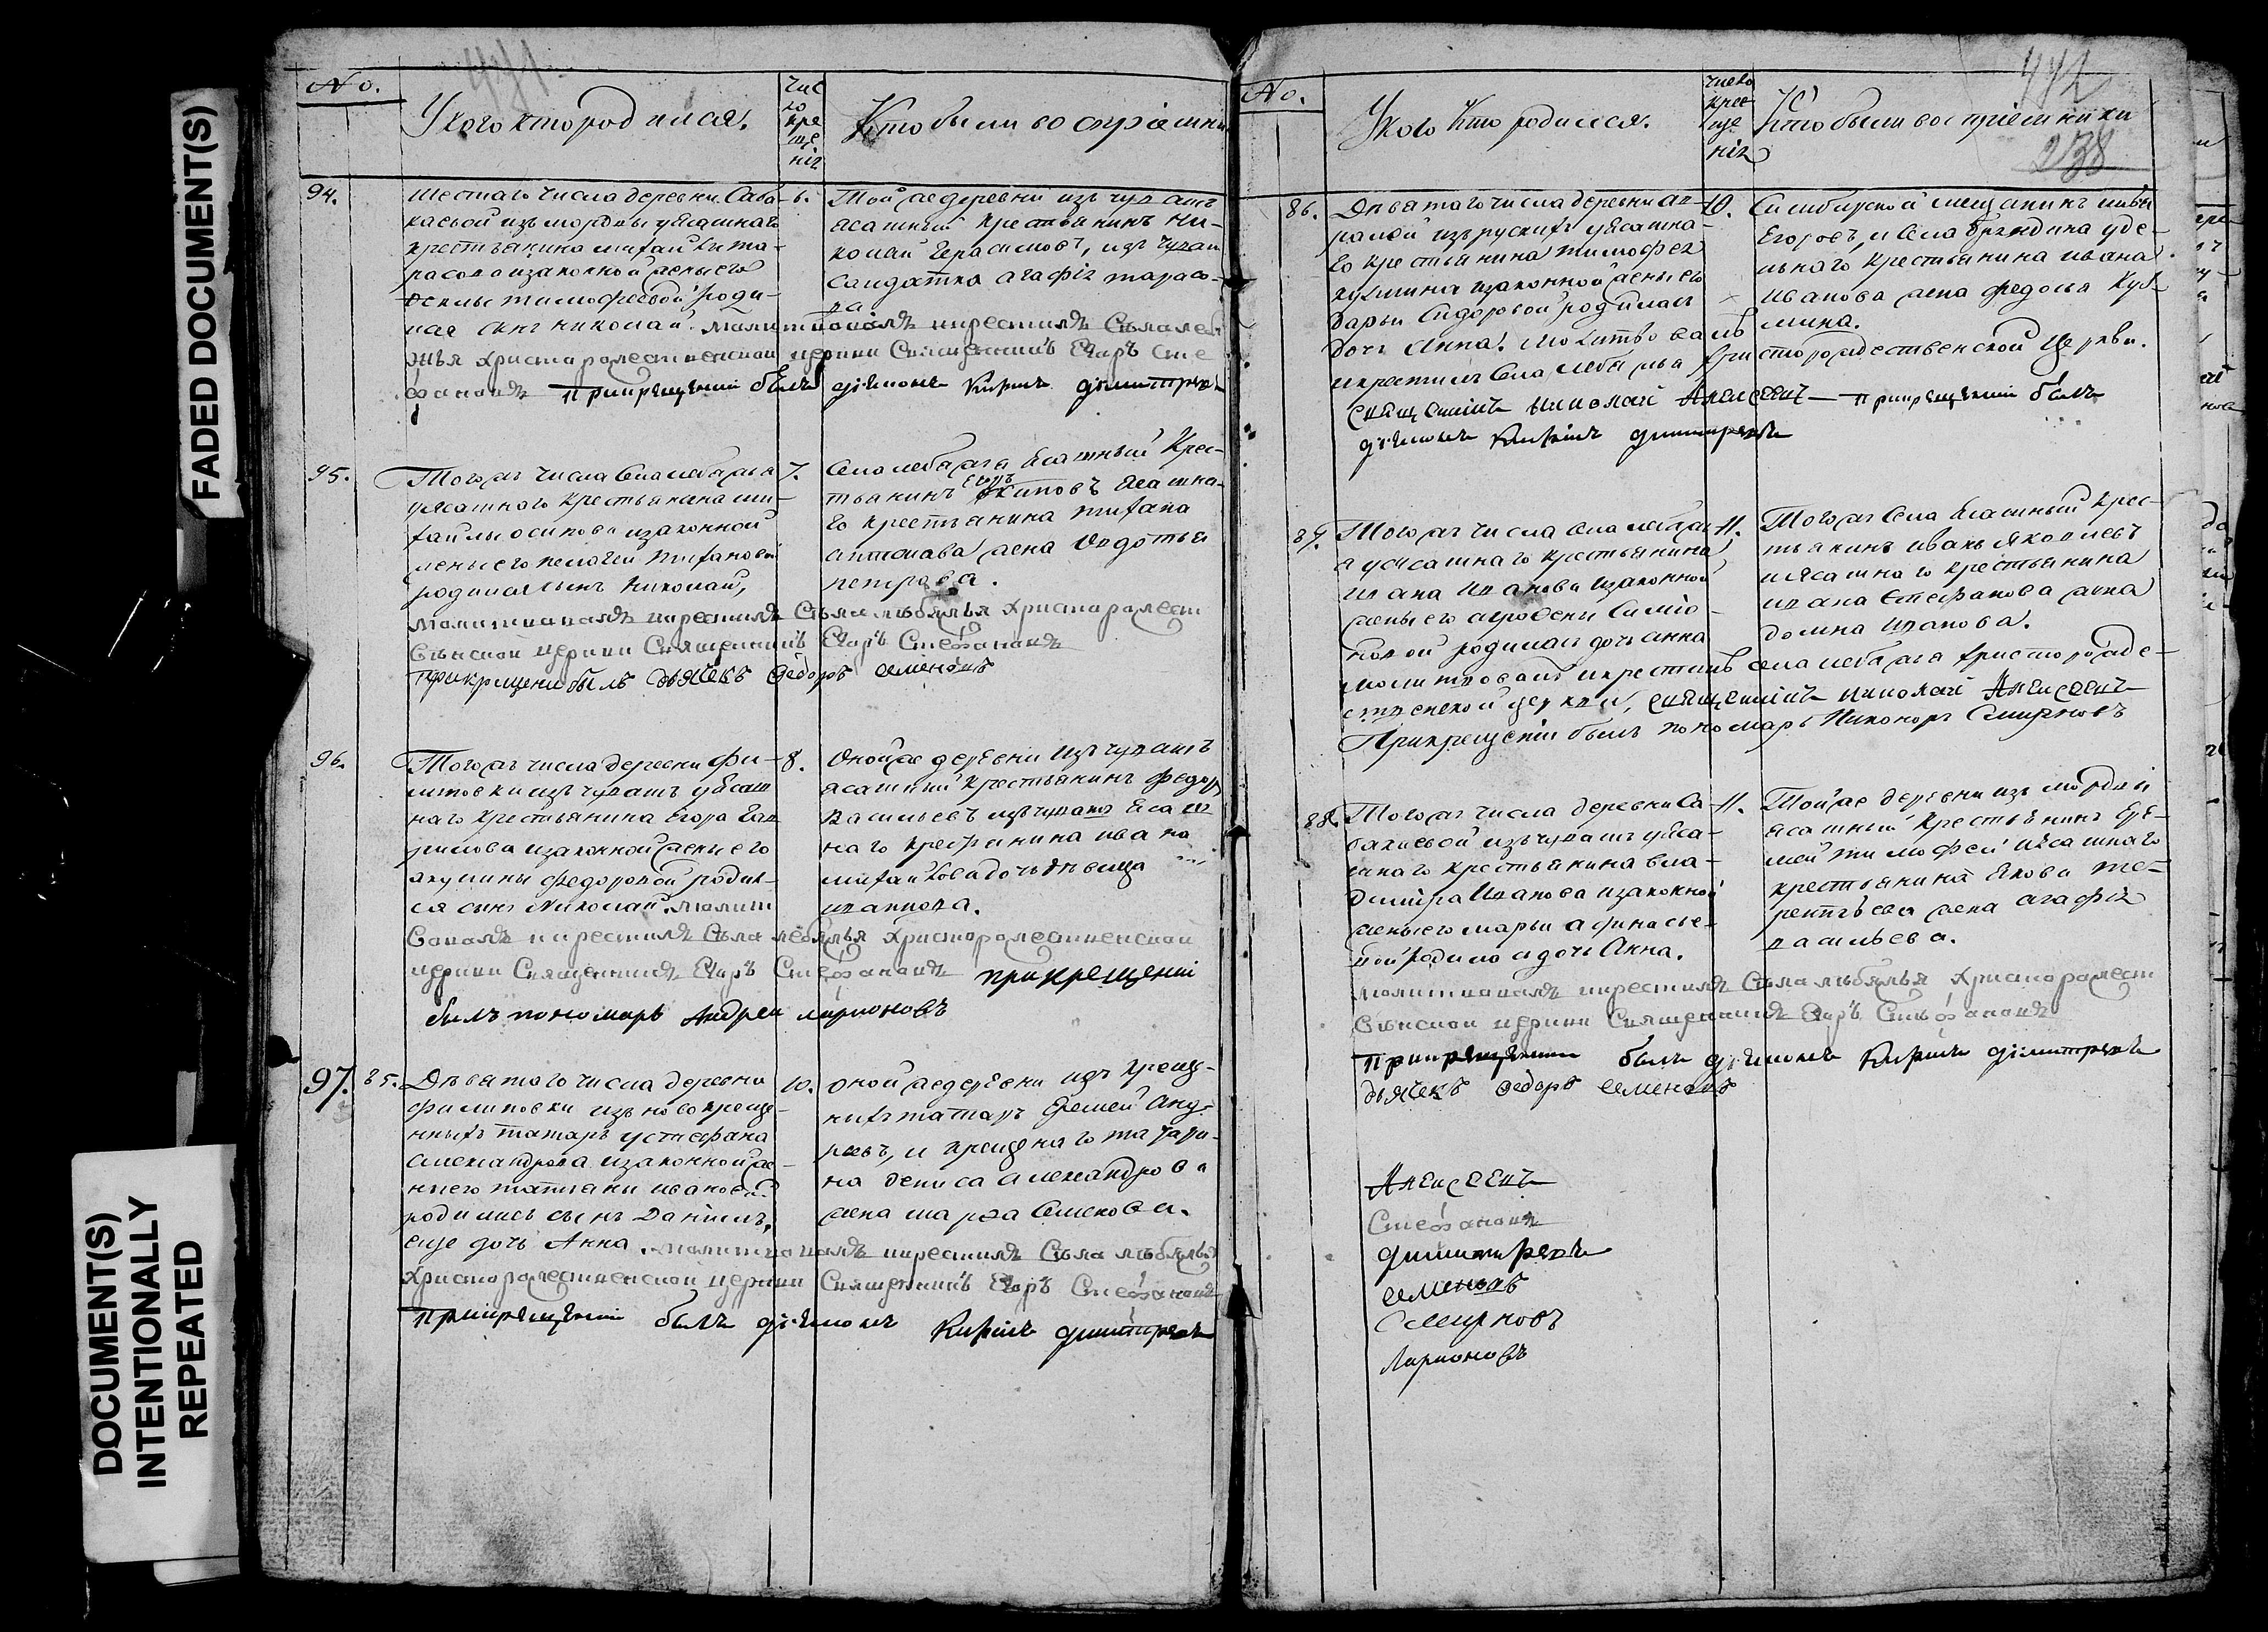 FADED DOCUMENT(S)
DOCUMENT(S)
INTENTIONALLY
REPEATED
441
No.
У кого кто родился.
Чис
ло
кре
ще
нія
Кто были воспріемни
94.
Шестаго числа деревни Саба-
каевой изъ мордвы уясашнаго
крестьянина михайлы та-
расова изаконной жены его
тимофеевой роди-
лся сынъ николай. молитвовалъ икрестилъ Села леб
яжья христорождественской церкви Священникъ Егоръ Сте
фановъ прикрещении былъ діяконъ Кирилъ димитревъ
6.
Той же деревни изъ чувашъ
ясашный крестьянинъ Ни-
колай Герасимовъ, изъ чуваш
салдатка агафія тарасо-
ва
95.
Того жъ числа Села лебяжья
уясашного крестьянина ми-
хайлы осипова изаконной
жены его пелагеи
родился сынъ Николай,
молитвовалъ икрестилъ Села лебяжья христорождест
венской церкви Священникъ Егоръ Стефановъ
прикрещени былъ дьячекъ Федоръ семеновъ
7.
Села лебяжья Ясашный Крес-
тьянинъ ясашна-
го крестьянина
жена Авдотья
петрова.
96.
Того жъ числа деревни Фи-
липовки изъ чувашъ уясаш
наго крестьянина Егора Гав
рилова изаконной жены его
акулины федоровой родил-
ся сынъ Николай. молит
вовалъ икрестилъ Села лебяжья христорождественской
церкви Священникъ Егоръ Стефановъ прикрещеніи
былъ пономарь Андреи ларионовъ
8.
Оной же деревни изъ чувашъ
ясашный крестьянинъ федоръ
Васильевъ изъ чувашъ Ясаш
наго крестьянина ивана
михайлова дочь девица
иванова.
97. 85.
Девятаго числа деревни
филиповки изъ новокреще-
нныхъ татаръ устефана
александрова изаконной же-
ны его татияны ивановой
родились сынъ Даніилъ,
еще дочь Анна. молитвовалъ икрестилъ Села лебяжья
Христорождественской церкви Священникъ Егоръ Стефановъ
прикрещении былъ діяконъ Кирилъ димитревъ
10.
оной же деревни изъ креще-
ныхъ татаръ Еремей Анд-
реевъ, и крещенаго татари-
на дениса александрова
жена марѳа Семенова.
442
238
No.
У кого Кто родился.
число
кре
ще
нія
Кто были воспріемники
86.
Девятаго числа деревни
изъ рускихъ уясашна-
го крестьянина тимофея
кузмина изаконной жены его
дарьи Сидоровой родилась
дочь Анна. молитвовалъ
икрестилъ Села лебяжья христорождественской церкви.
священникъ николай Алексеевъ прикрещении былъ
діяконъ Кирилъ димитревъ
10.
Симбирской мещанинъ
Егоровъ, и Села брандина уде-
льнаго крестьянина ивана
иванова жена федосья Куз-
мина.
87.
Того жъ числа Села лебяжь-
я уясашнаго крестьянина
ивана иванова изаконной
жены его аграфены Симио-
новой родилась дочь анна
молитвовалъ икрестилъ села лебяжья христорожде-
ственской церкви, священникъ николай Алексеевъ
Прикрещеніи былъ пономарь Никоноръ Смирновъ
11.
Того жъ Села Ясашный крес-
тьянинъ иванъ яковлевъ
иясашнаго крестьянина
ивана Стефанова жена
домна иванова.
88.
Того жъ числа деревни Са-
бакаевой изъ чувашъ уяса-
шнаго крестьянина вла-
димира Иванова изаконной
жены его марьи афанасье-
вой родилась дочь Анна.
молитвовалъ икрестилъ Села лебяжья христорождест
венской церкви Священникъ Егоръ Стефановъ
прикрещении былъ діяконъ Кирилъ димитревъ
дьячекъ Федоръ семеновъ
11.
Той же деревни изъ мордвы
ясашный крестьянинъ Ере-
мей тимофеи иясашнаго
крестьянина Якова те-
рентьева жена агафія
васильева.
Алексеевъ
Стефановъ
димитревъ
семеновъ
Смирновъ
Ларионовъ